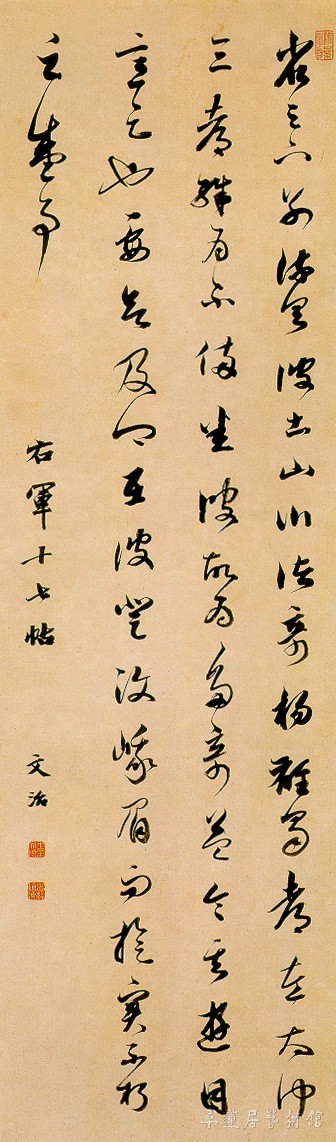 省足下別疏具彼土山川諸奇楊雄蜀都左太沖
三都殊為不備悉彼故為多奇益令其遊目
意足也要欲及卿在彼登汶峨眉而旋實不朽
之盛事
右軍十七帖
文治
蓮居藝術館